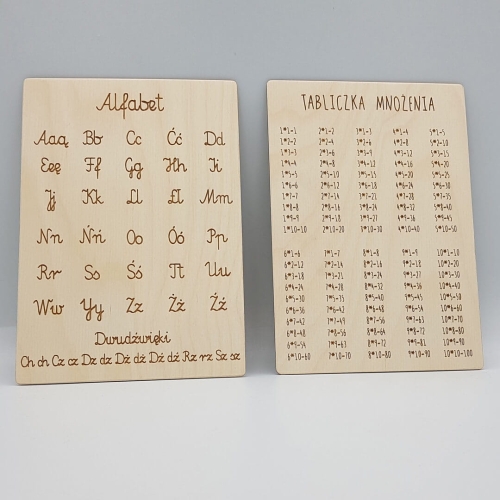 Alfabet
Aaą Bb Cc Ćć Dd
Eeę Ff Gg Hh Ii
Jj Kk Ll Łł Mm
Nn Ńń Oo Óó Pp
Rr Ss Śś Tt Uu
Ww Yy Zz Żż Źź
Dwudźwięki
Ch ch Cz cz Dz dz Dź dź Dż dż Rz rz Sz sz
TABLICZKA MNOŻENIA
1*1-1 2*1-2 3*1-3 4*1-4 5*1-5
1*2-2 2*2-4 3*2-6 4*2-8 5*2-10
1*3-3 2*3-6 3*3-9 4*3-12 5*3-15
1*4-4 2*4-8 3*4-12 4*4-16 5*4-20
1*5-5 2*5-10 3*5-15 4*5-20 5*5-25
1*6-6 2*6-12 3*6-18 4*6-24 5*6-30
1*7-7 2*7-14 3*7-21 4*7-28 5*7-35
1*8-8 2*8-16 3*8-24 4*8-32 5*8-40
1*9-9 2*9-18 3*9-27 4*9-36 5*9-45
1*10-10 2*10-20 3*10-30 4*10-40 5*10-50
6*1-6 7*1-7 8*1-8 9*1-9 10*1-10
6*2-12 7*2-14 8*2-16 9*2-18 10*2-20
6*3-18 7*3-21 8*3-24 9*3-27 10*3-30
6*4-24 7*4-28 8*4-32 9*4-36 10*4-40
6*5-30 7*5-35 8*5-40 9*5-45 10*5-50
6*6-36 7*6-42 8*6-48 9*6-54 10*6-60
6*7-42 7*7-49 8*7-56 9*7-63 10*7-70
6*8-48 7*8-56 8*8-64 9*8-72 10*8-80
6*9-54 7*9-63 8*9-72 9*9-81 10*9-90
6*10-60 7*10-70 8*10-80 9*10-90 10*10-100